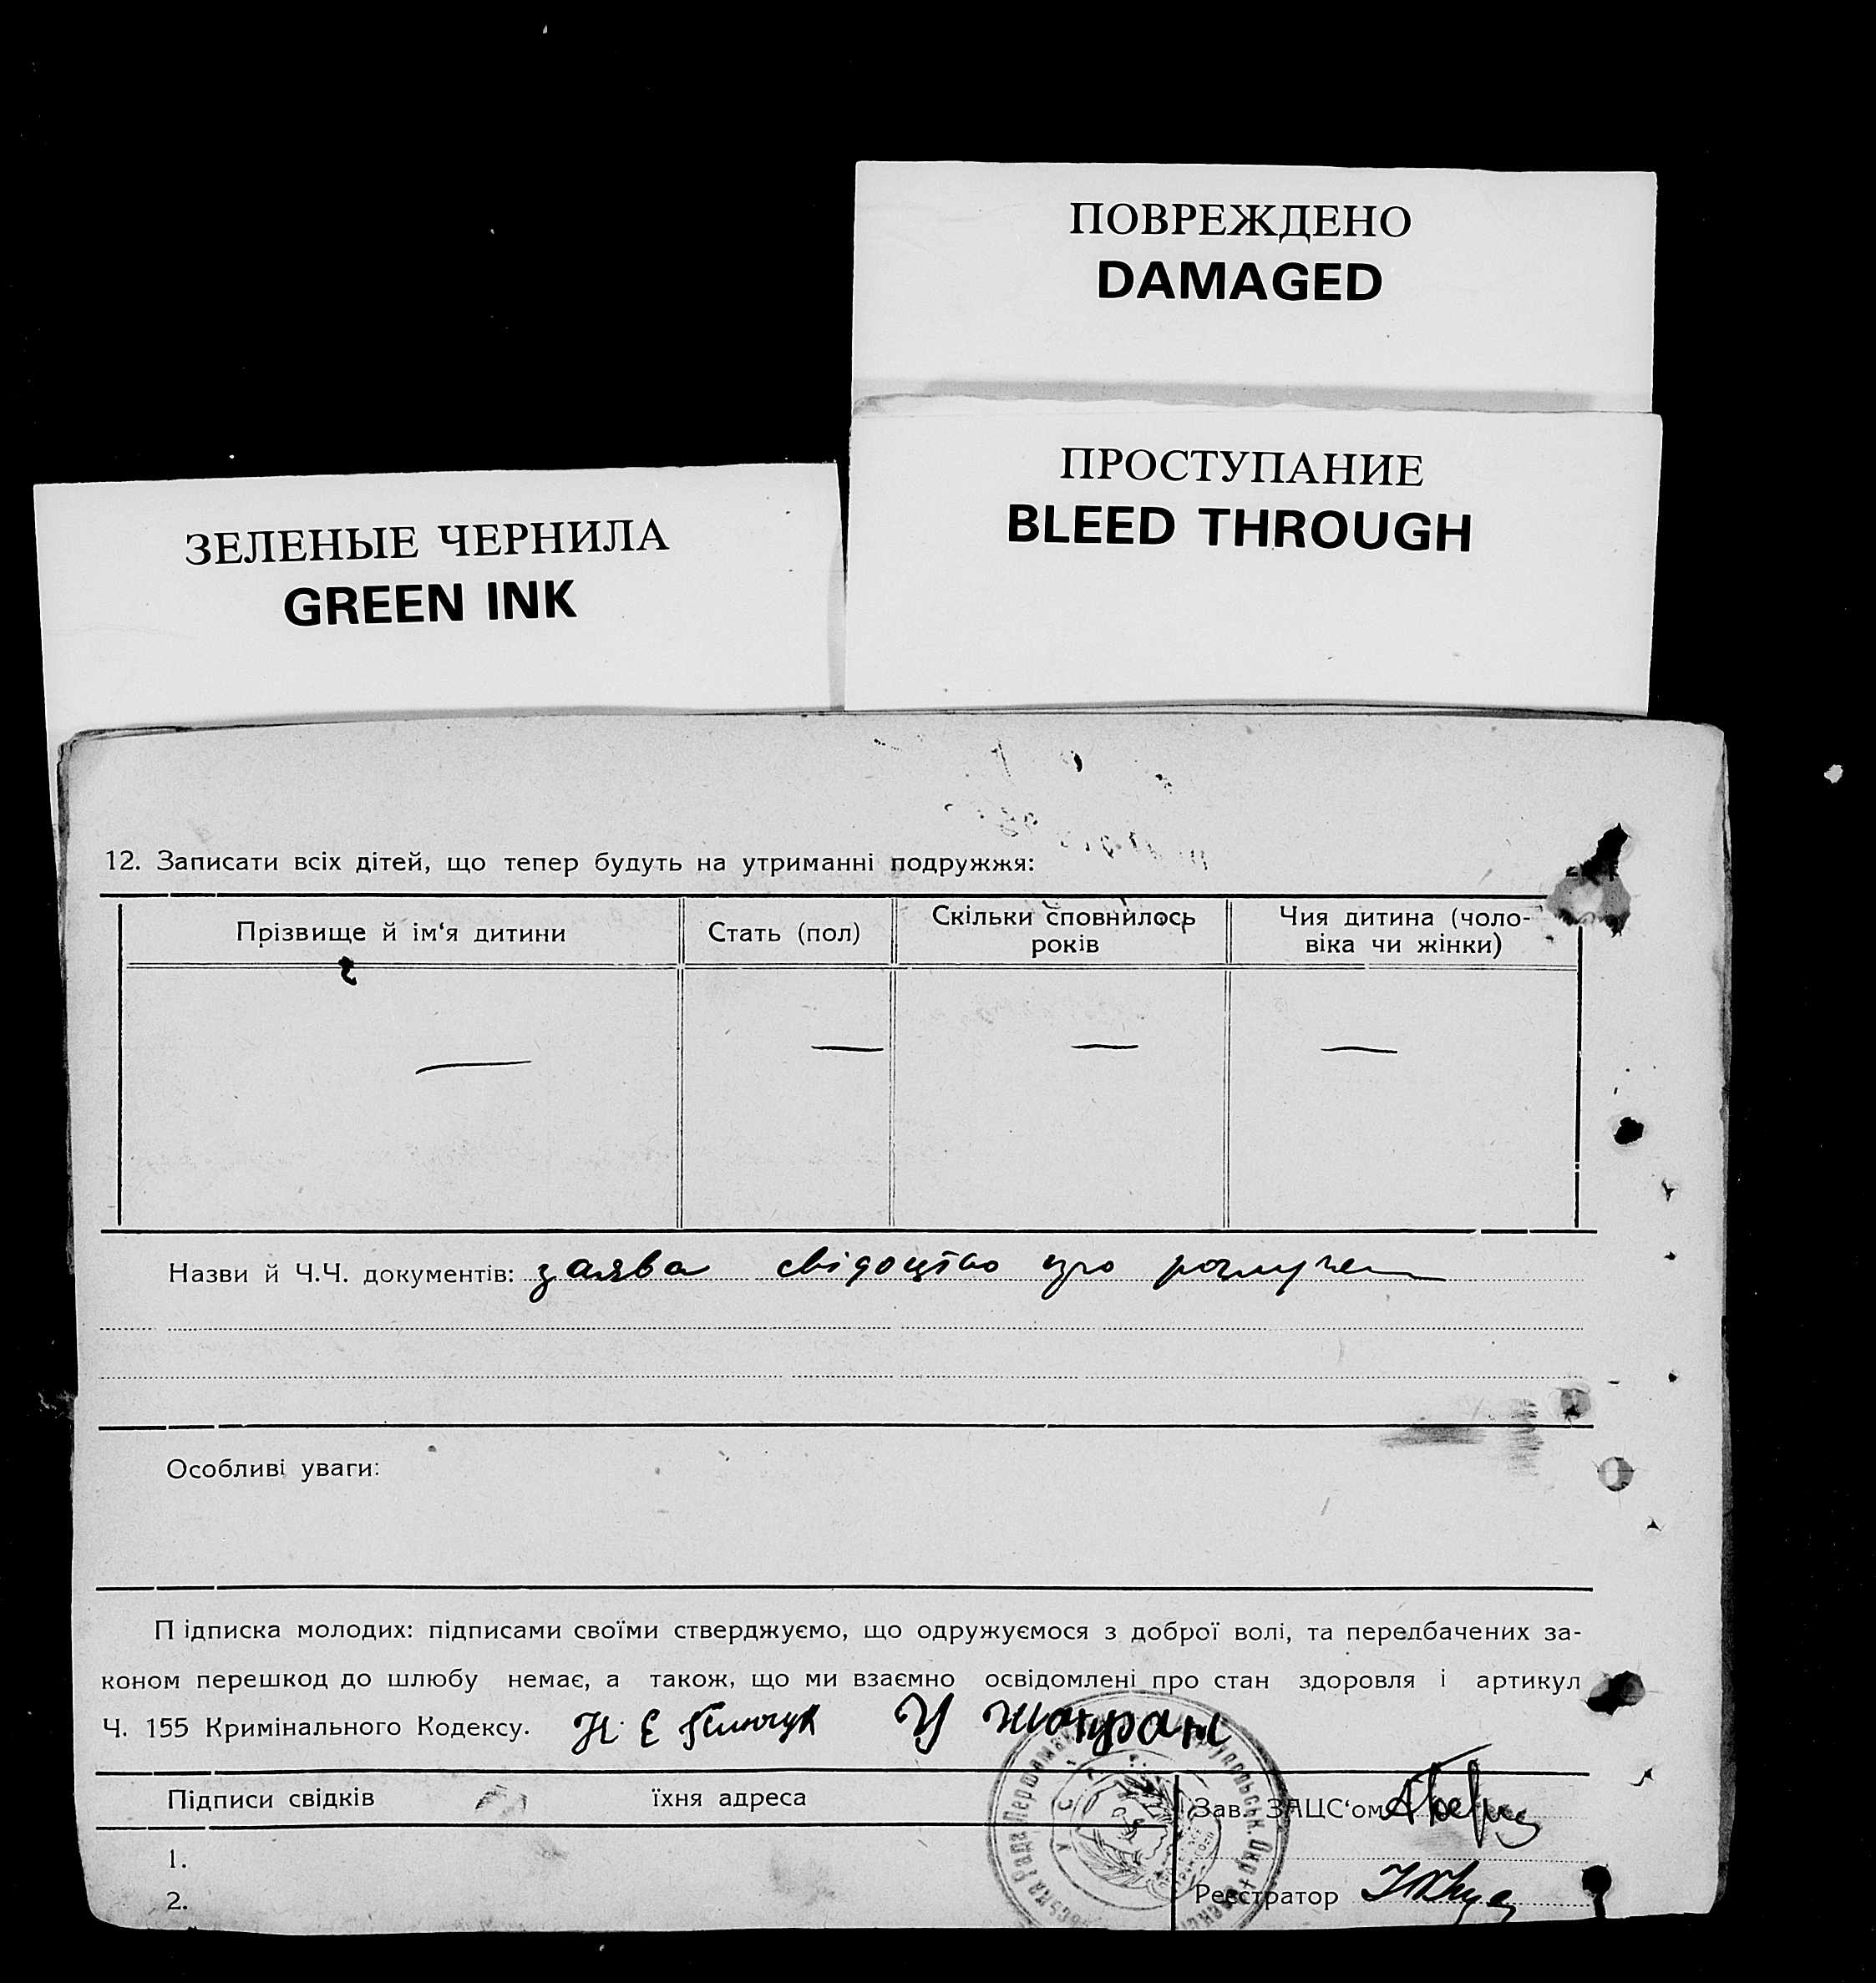 ПОВРЕЖДЕНО
DAMAGED
ПРОСТУПАНИЕ
BLEED THROUGH
ЗЕЛЕНЫЕ ЧЕРНИЛА
GREEN INK
12. Записати всіх дітей, що тепер будуть на утриманні подружжя:
Прізвище й ім‘я дитини
Стать (пол)
Скільки сповнилось
років
Чия дитина (чоло-
віка чи жінки)
— — — —
Назви й Ч.Ч. документів: заява свідоцтво про
Особливі уваги:
Підписка молодих: підписами своїми стверджуємо, що одружуємося з доброї волі, та передбачених за-
коном перешкод до шлюбу немає, а також, що ми взаємно освідомлені про стан здоровля і артикул
Ч. 155 Кримінального Кодексу.
Підписи свідків їхня адреса
Зав. ЗАЦС‘ом
1.
2.
Реєстратор